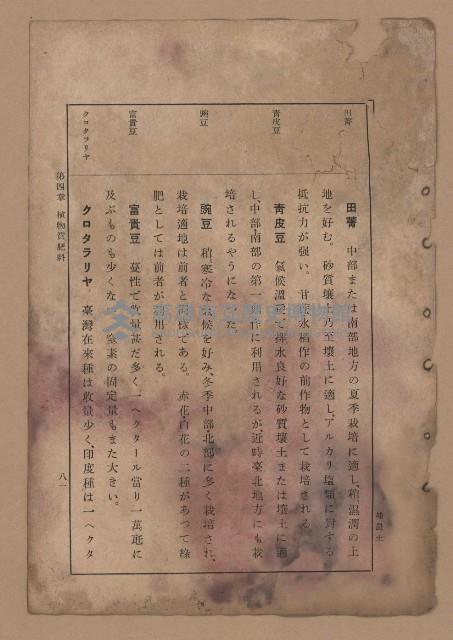 田菁
青皮豆
豌豆
富貴豆
クロタラリヤ
田菁　中部または南部地方の夏季栽培に適し、稍濕潤の土
地を好む。砂質壤土乃至壤土に適し、アルカリ鹽類に對する
抵抗力が强い。甘蔗、水稻作の前作物として栽培される。
青皮豆　氣候溫暖で排水良好な砂質壤土または壤土に適
し、中部南部の第一期作に利用されるが、近時臺北地方にも栽
培されるやうになつた。
豌豆　稍、寒冷な氣候を好み、冬季中部、北部に多く栽培され、
栽培適地は前者と同樣である。赤花、白花の二種があつて綠
肥としては前者が利用される。
富貴豆　蔓性で收量甚だ多く一ヘクタール當り一萬瓩に
及ぶものも少くない。窒素の固定量もまた大きい。
クロタラリヤ　臺灣在來種は收量少く、印度種は一ヘクタ
第四章　植物質肥料
八一